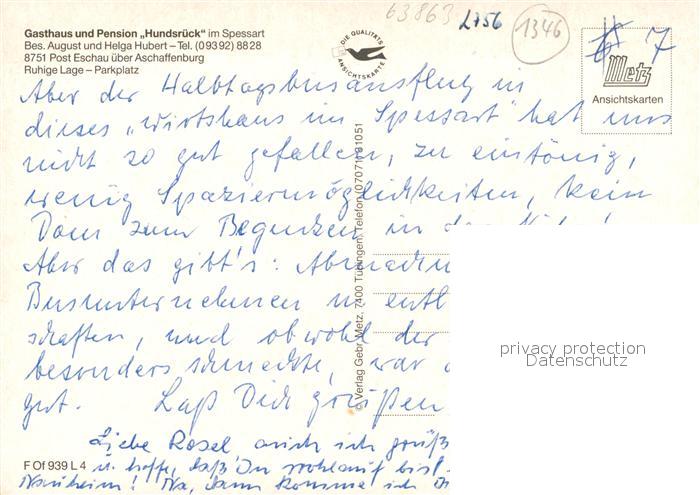 63863
L756
1346
7
Gasthaus und Pension „Hundsrück“ im Spessart
Bes. August und Helga Hubert – Tel. (0 93 92) 88 28
8751 Post Eschau über Aschaffenburg
Ruhige Lage – Parkplatz
DIE QUALITÄTS ANSICHTSKARTE
Metz
Ansichtskarten
Aber der Halbtagsbusausflug in
dieses „Wirtshaus im Spessart“ hat uns
nicht so gut gefallen, zu eintönig,
wenig Spaziermöglichkeiten, kein
Dom zum Begucken in der
Aber das gibt's:
Busunternehmen
schaften, und obwohl der
besonders schmeckte, war
gut. Laß Dich grüßen
Liebe Rosel auch ich grüß
u. hoffe, daß Du wohlauf bist.
Nauheim! Na, dann komme ich
© Verlag Gebr. Metz, 7400 Tübingen, Telefon (07071) 31051
F Of 939 L 4
privacy protection
Datenschutz